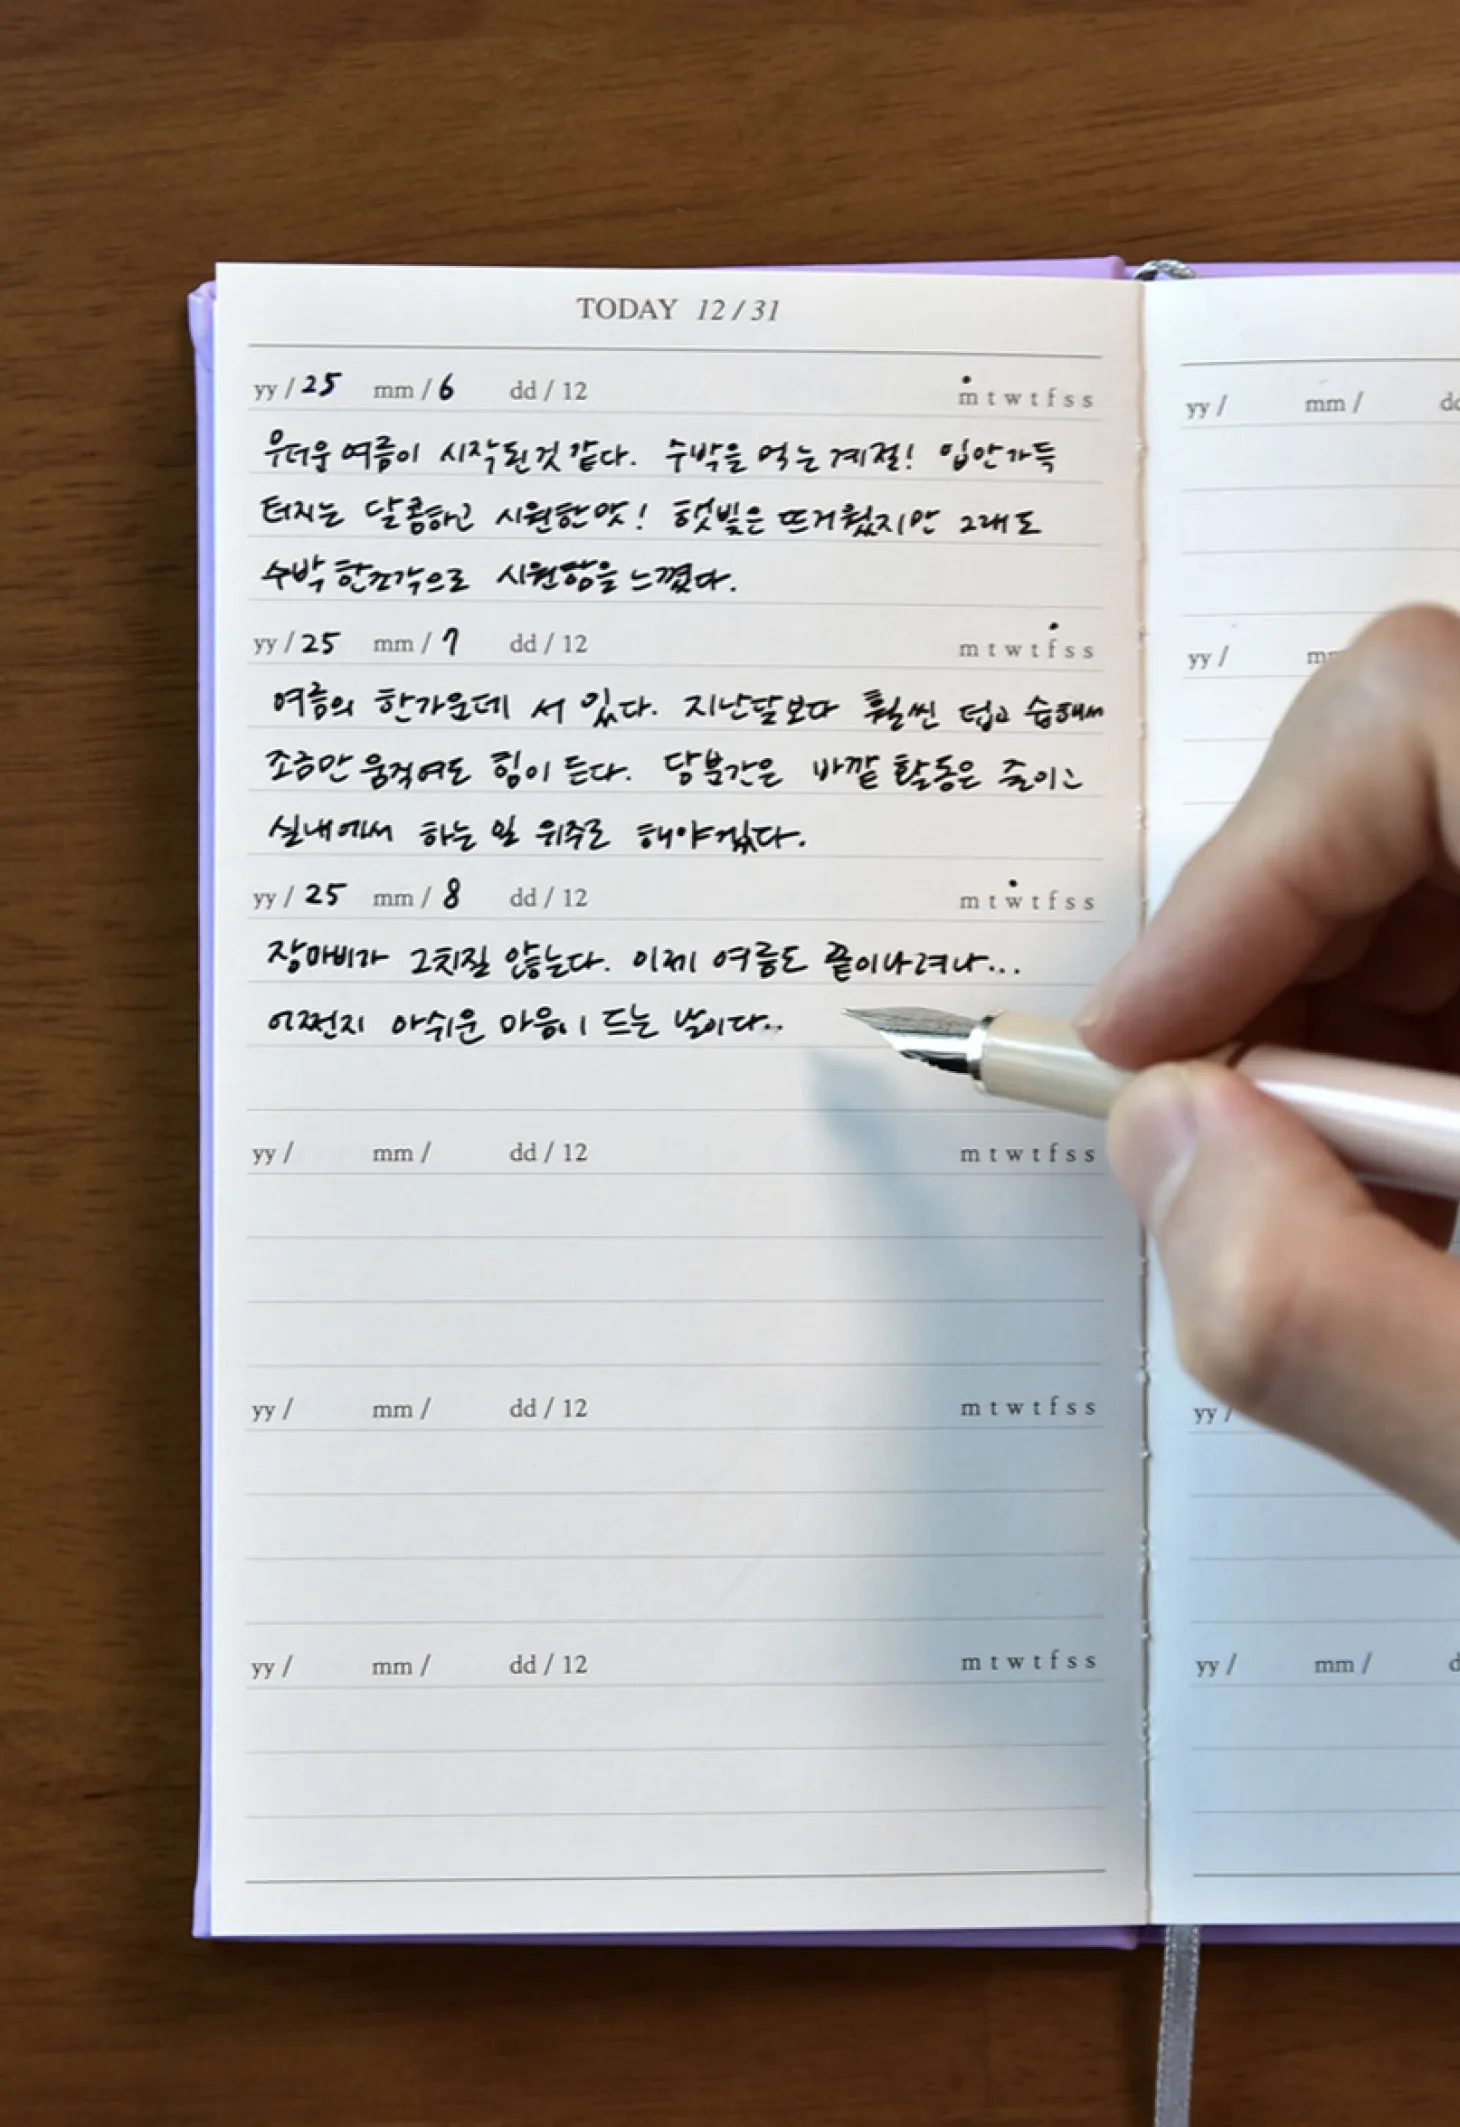 TODAY 12 / 31
yy / 25 mm / 6 dd / 12 m t w t f s s
무더운 여름이 시작된것 같다. 수박을 먹는 계절! 입안가득
터지는 달콤하고 시원한맛! 햇빛은 뜨거웠지만 그래도
수박 한조각으로 시원함을 느꼈다.
yy / 25 mm / 7 dd / 12 m t w t f s s
여름의 한가운데 서 있다. 지난달보다 훨씬 덥고 습해서
조금만 움직여도 힘이 든다. 당분간은 바깥 활동은 줄이고
실내에서 하는 일 위주로 해야겠다.
yy / 25 mm / 8 dd / 12 m t w t f s s
장마비가 그치질 않는다. 이제 여름도 끝이나려나...
어쩐지 아쉬운 마음이 드는 날이다..
yy / mm / dd / 12 m t w t f s s
yy / mm / dd / 12 m t w t f s s
yy / mm / dd / 12 m t w t f s s
yy / mm /
yy /
yy /
yy / mm /